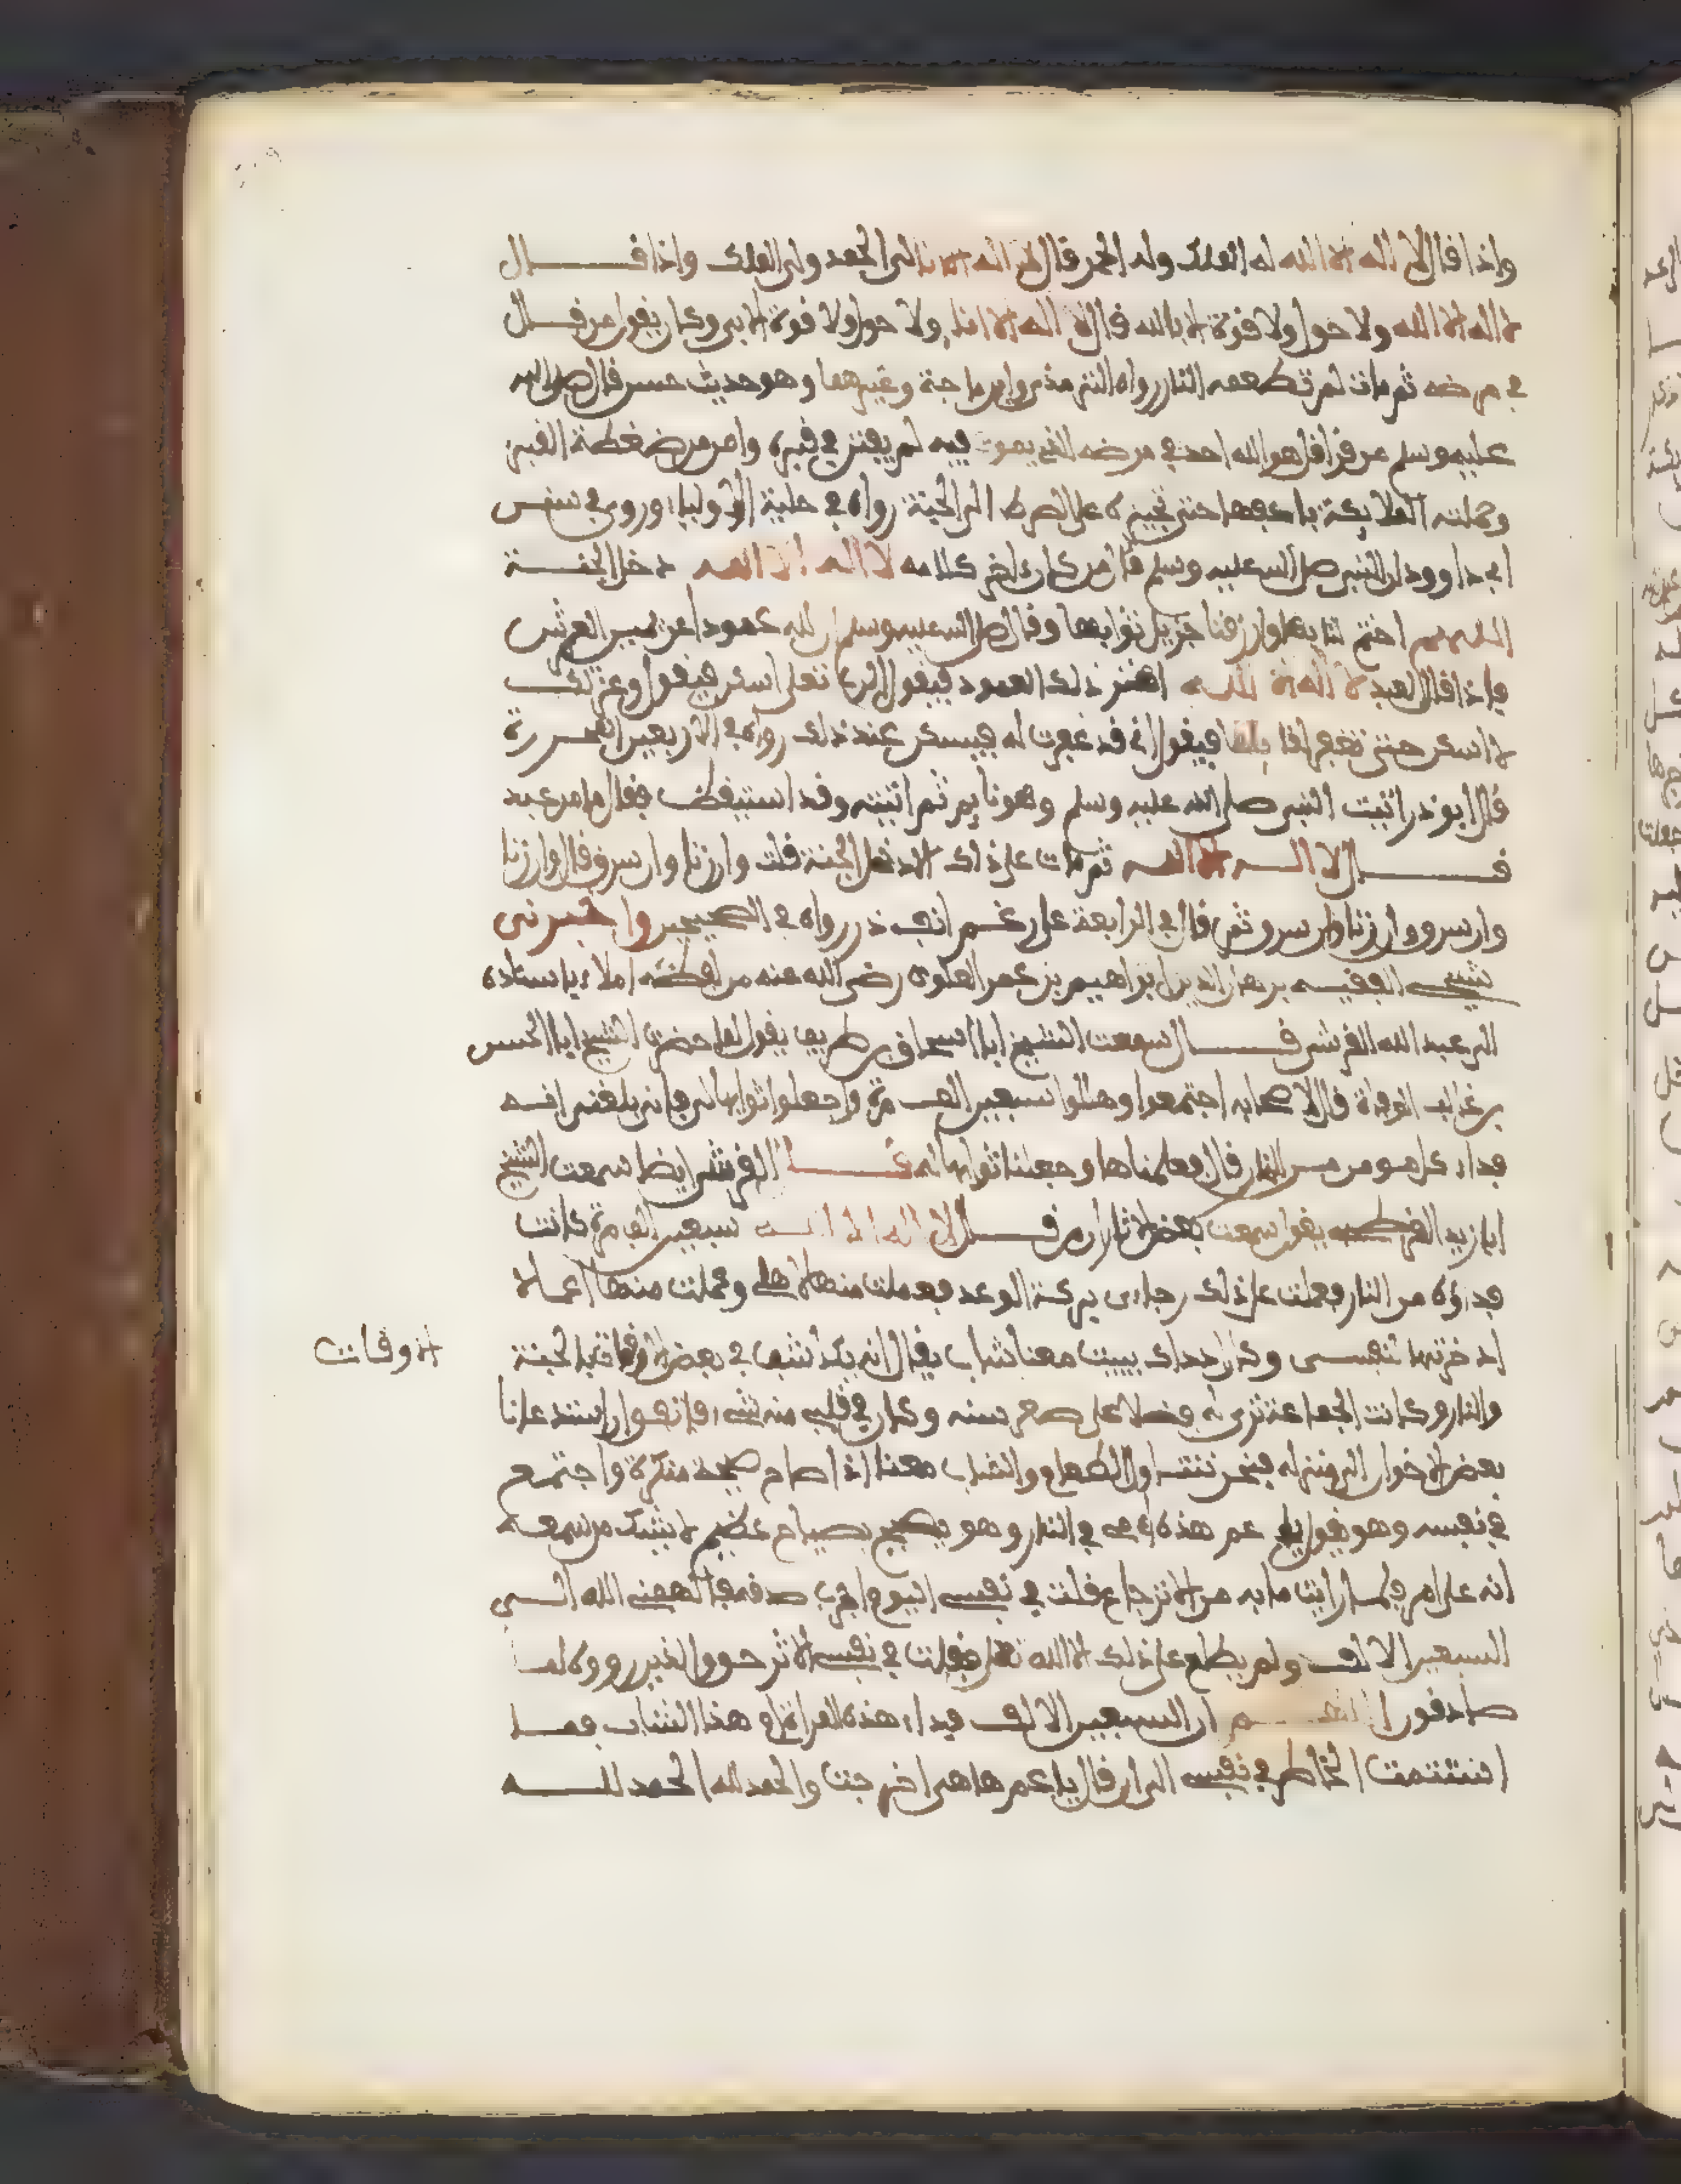 واذا قال لا اله الا الله له الملك وله الحمد قال لا اله الا انا لي الحمد ولي الملك واذا قال
لا اله الا الله ولا حول ولا قوة الا بالله قال لا اله الا انا ولا حول ولا قوة الا بي وكان يقول من قال
في مرضه ثم مات لم تطعمه النار رواه الترمذي وابن ماجة وغيرهما وهو حديث حسن قال صلى الله
عليه وسلم من قرا قل هو الله احد في مرضه الذي يموت فيه لم يفتن في قبره وامن من ضغطة القبر
وحملته الملايكة باكفها حتى تجيزه على الصرط الى الجنة رواه في حلية الاولياء وروي في سنن
ابي داوود ان النبي صلى الله عليه وسلم قال من كان اخر كلامه لا اله الا الله دخل الجنة
اللهم اختم لنا بها وارزقنا جزيل ثوابها وقال صلى الله عليه وسلم ان لله عمودا عن يمين العرش
فاذا قال العبد لا اله الا الله اهتز ذلك العمود فيقول الله تعلى اسكن فيقول وعزتك
لا اسكن حتى تغفر لقائلها فيقول اني قد غفرت له فيسكن عند ذلك رواه في الاربعين
قال ابو ذر اتيت النبي صلى الله عليه وسلم وهو نايم ثم اتيته وقد استيقظ فقال ما من عبد
قال لا اله الا الله ثم مات على ذلك الا دخل الجنة قلت وان زنا وان سرق قال وان زنا
وان سرق وان زنا وان سرق ثم قال في الرابعة على رغم انف ذر رواه في الصحيحين واخبرني
شيخي الفقيه برهان الدين ابراهيم بن عمر العلوي رضي الله عنه من لفظه املاء باسناده
الى عبد الله القرشي قال سمعت الشيخ ابا اسحاق بن طريف يقول لما حضرت الشيخ ابا الحسن
بن غالب الوفاة قال لاصحابه اجتمعوا وهللوا سبعين الف مرة واجعلوا ثوابها لي فانه بلغني انها
فداء كل مومن من النار قال فعملناها وجعلنا ثوابها له قال القرشي ايضا سمعت الشيخ
ابا زيد القرطبي يقول سمعت بعض الاثار ان من قال لا اله الا الله سبعين الف مرة كانت
فداؤه من النار فعملت على ذلك رجاء بركة الوعد فعملت منها لاهلي وعملت منها اعمالا
ادخرتها لنفسي وكان اذ ذاك يبيت معنا شاب يقال انه يكاشف في بعض الاوقات بالجنة
الاوقات
والنار وكانت الجماعة ترى له فضلا على صغر سنه وكان في قلبي منه شيء فاتفق ان استدعانا
بعض الاخوان الى منزله فنحن نتناول الطعام والشاب معنا اذ صاح صيحة منكرة واجتمع
في نفسه وهو يقول يا عم هذه امي في النار وهو يصيح بصياح عظيم لا يشك من سمعه
انه على امر فلما رايت ما به من الانزعاج قلت في نفسي اليوم اجرب صدقه فالهمني الله الى
السبعين الالف ولم يطلع على ذلك الا الله تعلى فقلت في نفسي الاثر حق والذين رووه لنا
صادقون اللهم ان السبعين الالف فداء هذه المراة ام هذا الشاب فما
استتممت الخاطر في نفسي الى ان قال يا عم ها هي اخرجت والحمد لله الحمد لله